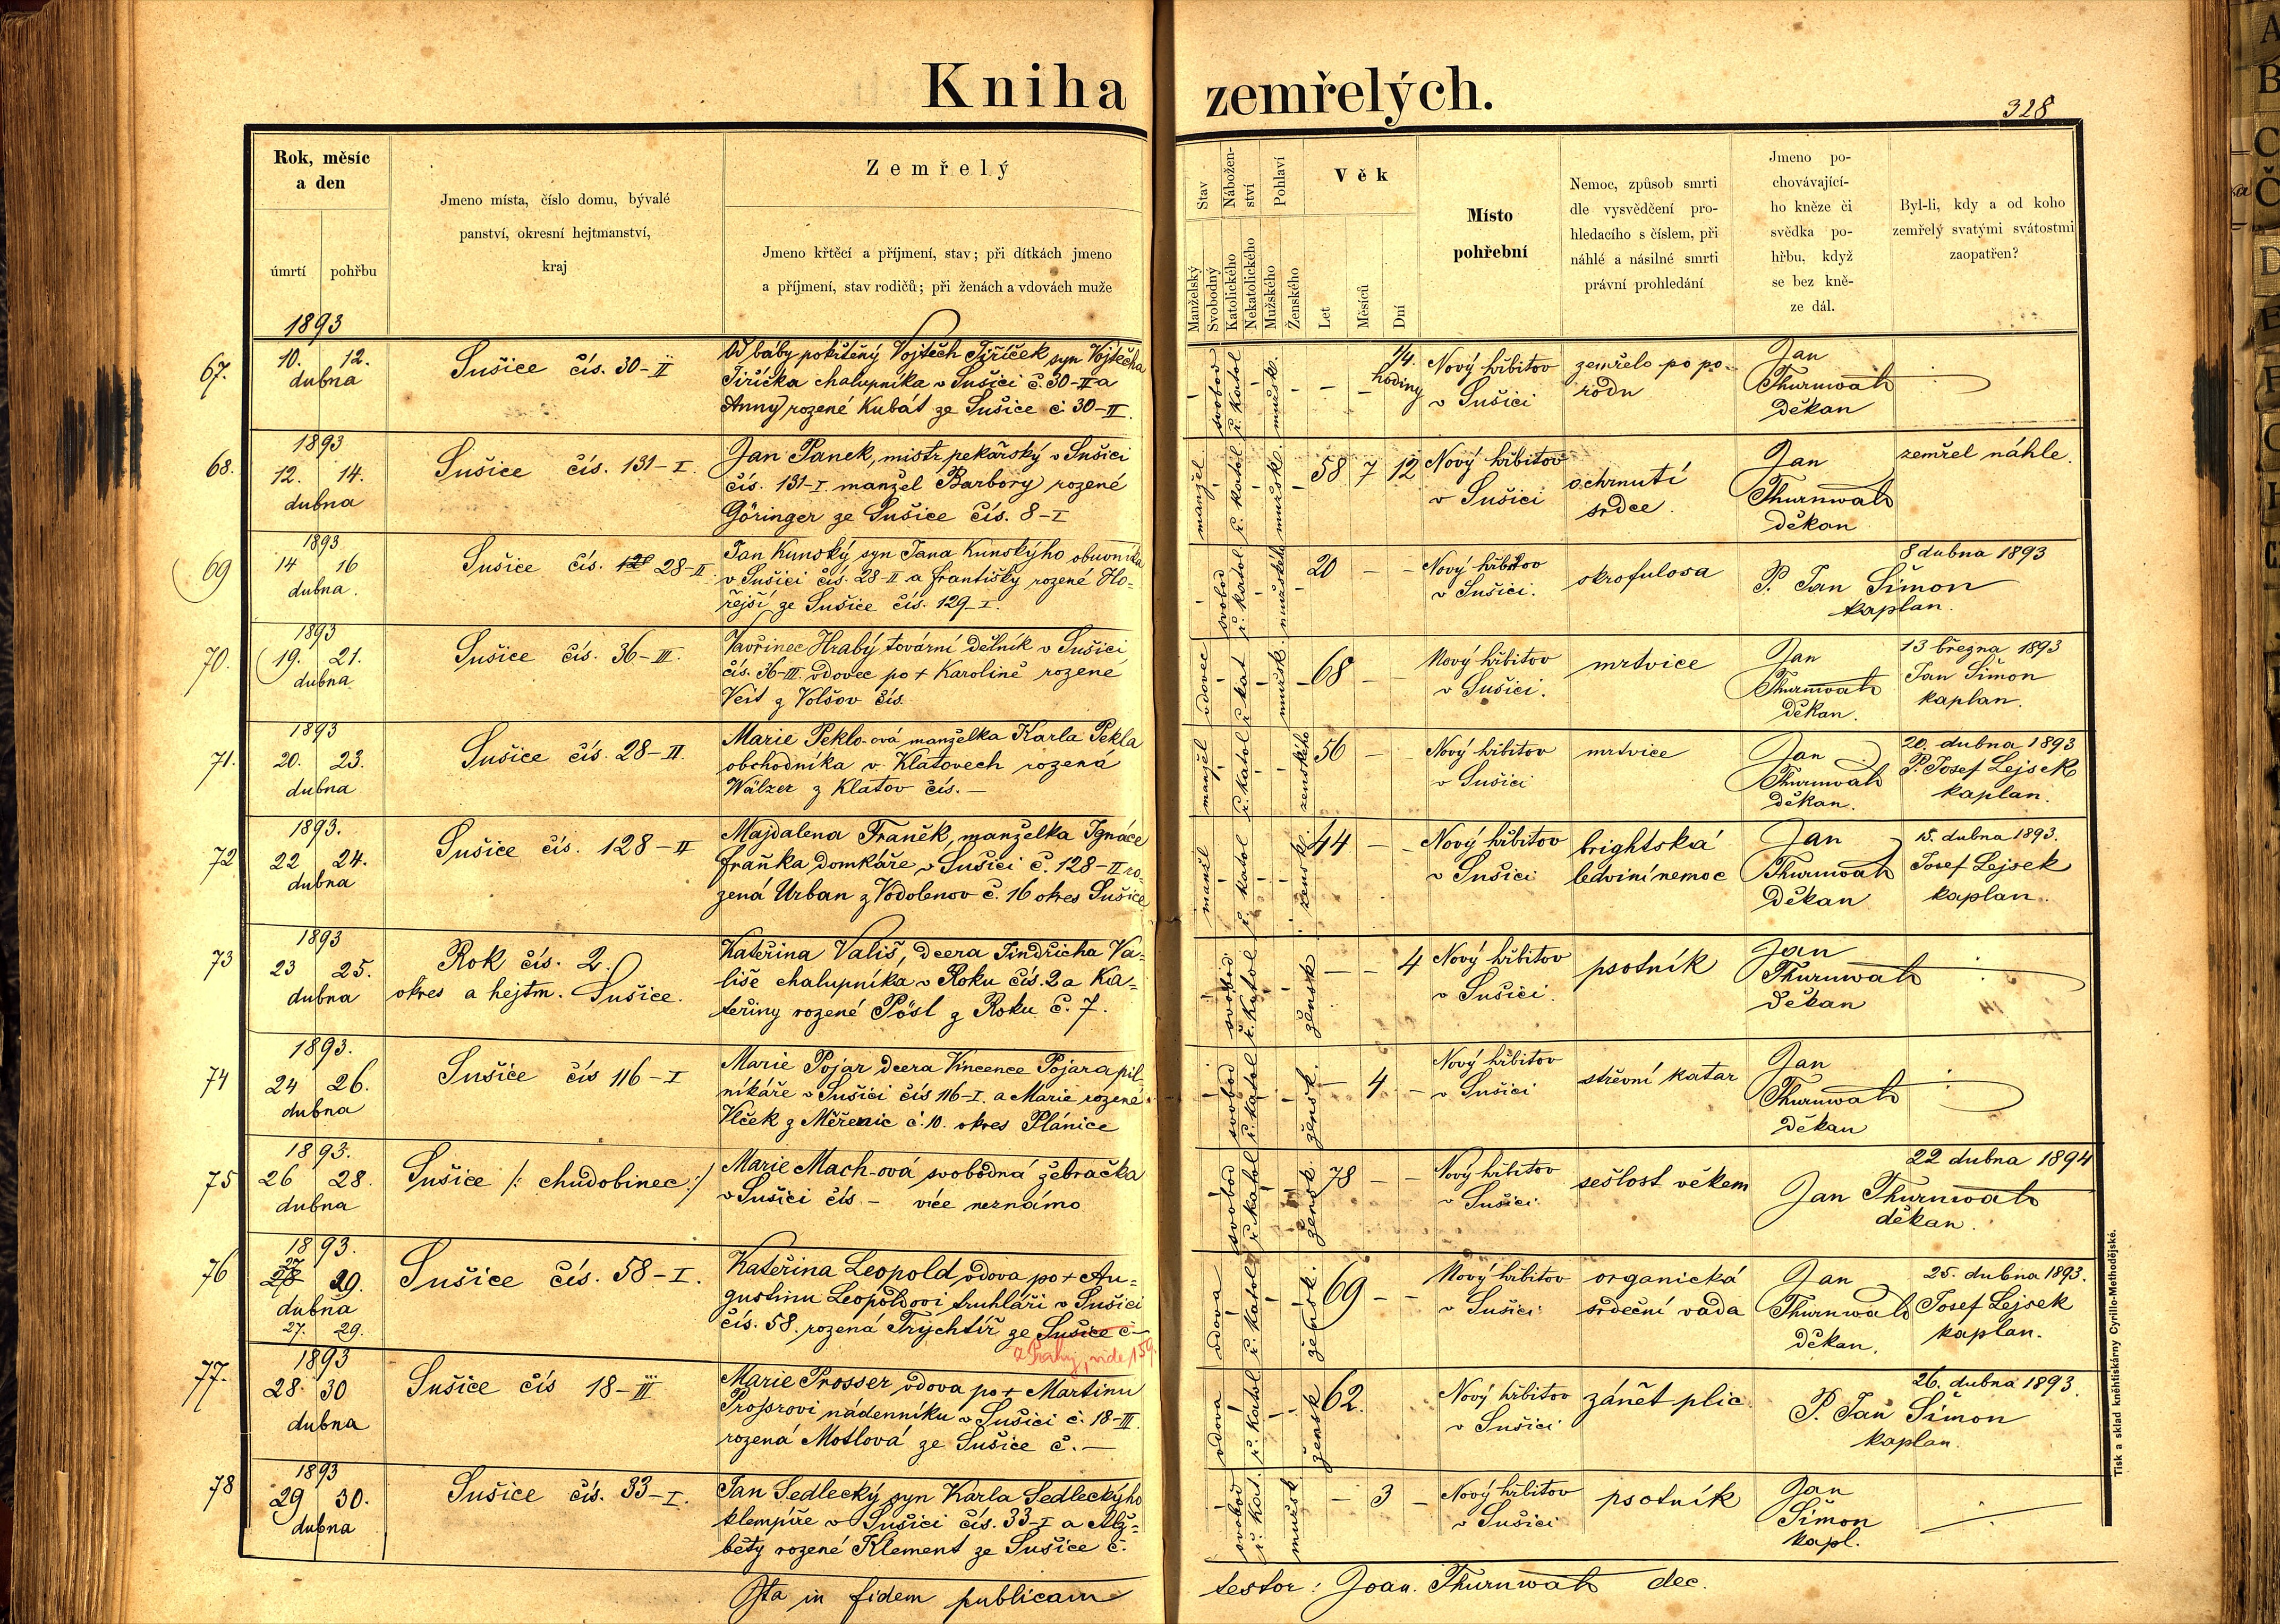 Kniha zemřelých.
328
Rok, měsíc
a den
úmrtí
pohřbu
Jmeno místa, číslo domu, bývalé
panství, okresní hejtmanství,
kraj
Zemřelý
Jmeno křtěcí a příjmení, stav; při dítkách jmeno
a příjmení, stav rodičů; při ženách a vdovách muže
Stav
Manželský
Svobodný
Nábožen-
ství
Katolického
Nekatolického
Pohlaví
Mužského
Ženského
Věk
Let
Měsíců
Dní
Místo
pohřební
Nemoc, způsob smrti
dle vysvědčení pro-
hledacího s číslem, při
náhlé a násilné smrti
právní prohledání
Jmeno po-
chovávající-
ho kněze či
svědka po-
hřbu, když
se bez kně-
ze dál.
Byl-li, kdy a od koho
zemřelý svatými svátostmi
zaopatřen?
1893
67.
10. 12.
dubna
Sušice čís. 30-II
Od báby pokřtěný Vojtěch Jiříček syn Vojtěcha
Jiříčka chalupníka v Sušici č. 30-II a
Anny rozené Kubát ze Sušice č. 30-II.
svobod
ř. katol
mužsk.
— —
1/4.
hodiny
Nový hřbitov
v Sušici
zemřelo po po-
rodu
Jan
Thurnwald
děkan
68.
1893
12. 14.
dubna
Sušice čís. 131-I.
Jan Panek, mistr pekařský v Sušici
čís. 131-I. manžel Barbory rozené
Göringer ze Sušice čís. 8-I
manžel
ř. katol
mužsk.
58 7 12
Nový hřbitov
v Sušici
ochrnutí
srdce.
Jan
Thurnwald
děkan
zemřel náhle.
69
1893
14 16
dubna.
Sušice čís. 128 28-II
Jan Kunský syn Jana Kunskýho obuvníka
v Sušici čís. 28-II a Františky rozené Ho-
řejší ze Sušice čís. 129-I.
svobod
ř. katol
mužského
20 — —
Nový hřbitov
v Sušici.
skrofulosa
8 dubna 1893
P. Jan Šimon
kaplan.
70.
1893
19. 21.
dubna
Sušice čís. 36-III.
Vavřinec Hrabý tovární dělník v Sušici
čís. 36-III. vdovec po + Karolině rozené
Veit z Volšov čís.
vdovec
ř. kat
mužsk.
68 — —
Nový hřbitov
v Sušici.
mrtvice
Jan
Thurnwald
děkan.
13 března 1893
Jan Šimon
kaplan.
71.
1893
20. 23.
dubna
Sušice čís. 28-II.
Marie Peklo-ová manželka Karla Pekla
obchodníka v Klatovech rozená
Wälzer z Klatov čís. —
manžel
ř. katol
ženského
56 — —
Nový hřbitov
v Sušici
mrtvice
Jan
Thurnwald
děkan.
20. dubna 1893
P. Josef Lejsek
kaplan.
72
1893.
22 24.
dubna
Sušice čís. 128-II
Majdalena Franěk, manželka Ignáce
Fraňka domkáře v Sušici č. 128-II ro-
zená Urban z Vodolenov č. 16 okres Sušice
manžel
ř. katol
žensk.
44 — —
Nový hřbitov
v Sušici
brightská
ledviní nemoc
Jan
Thurnwald
děkan
15. dubna 1893.
Josef Lejsek
kaplan.
73
1893
23 25.
dubna
Rok čís. 2.
okres a hejtm. Sušice.
Kateřina Vališ, dcera Jindřicha Va-
liše chalupníka v Roku čís. 2 a Ka-
teřiny rozené Pösl z Roku č. 7.
svobod
ř. katol
žensk
— — 4
Nový hřbitov
v Sušici.
psotník
Jan
Thurnwald
děkan
74
1893.
24 26.
dubna
Sušice čís 116-I
Marie Pojar dcera Vincence Pojara pil-
níkáře v Sušici čís 116-I. a Marie rozené
Vlček z Měřenic č. 10. okres Plánice
svobod
ř. katol
žensk.
— 4. —
Nový hřbitov
v Sušici
střevní katar
Jan
Thurnwald
děkan
75
1893.
26 28.
dubna
Sušice /: chudobinec :/
Marie Mach-ová svobodná žebračka
v Sušici čís. — více neznámo
svobod
ř. katol
žensk.
78 — —
Nový hřbitov
v Sušici.
sešlost věkem
22 dubna 1894
Jan Thurnwald
děkan.
76
1893.
27
28 29.
dubna
27. 29.
Sušice čís. 58-I.
Kateřina Leopold, vdova po + Au-
gustinu Leopoldovi truhláři v Sušici
čís. 58. rozená Trychtíř ze Sušice č
z Prahy, vide 159.
vdova
ř. katol
žensk.
69 — —
Nový hřbitov
v Sušici
organická
srdeční vada
Jan
Thurnwald
děkan.
25. dubna 1893.
Josef Lejsek
kaplan.
77.
1893
28. 30
dubna
Sušice čís 18-III
Marie Prosser vdova po + Martinu
Prosserovi nádenníku v Sušici č. 18-III.
rozená Motlová ze Sušice č. —
vdova
ř. katol
žensk
62.
Nový hřbitov
v Sušici
zánět plic
26. dubna 1893.
P. Jan Šimon
kaplan.
78
1893
29 30.
dubna
Sušice čís. 33-I.
Jan Sedlecký syn Karla Sedleckýho
klempíře v Sušici čís. 33-I a Alž-
běty rozené Klement ze Sušice č.
svobod
ř. kat.
mužsk
— 3 —
Nový hřbitov
v Sušici
psotník
Jan
Šimon
kapl.
Ita in fidem publicam
testor: Joan. Thurnwald dec.
Tisk a sklad kněhtiskárny Cyrillo-Methodějské.